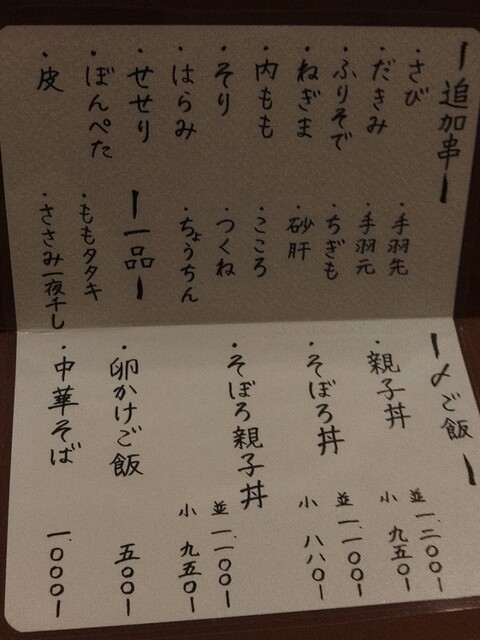 ー追加串ー
・さび
・だきみ
・ふりそで
・ねぎま
・内もも
・そり
・はらみ
・せせり
・ぼんぺた
・皮
・手羽先
・手羽元
・ちぎも
・砂肝
・こころ
・つくね
・ちょうちん
ー一品ー
・ももタタキ
・ささみ一夜干し
ー〆ご飯ー
・親子丼
並 一、二〇〇ー
小 九五〇ー
・そぼろ丼
並 一、一〇〇ー
小 八八〇ー
・そぼろ親子丼
並 一、一〇〇ー
小 九五〇ー
・卵かけご飯
五〇〇ー
・中華そば
一、〇〇〇ー